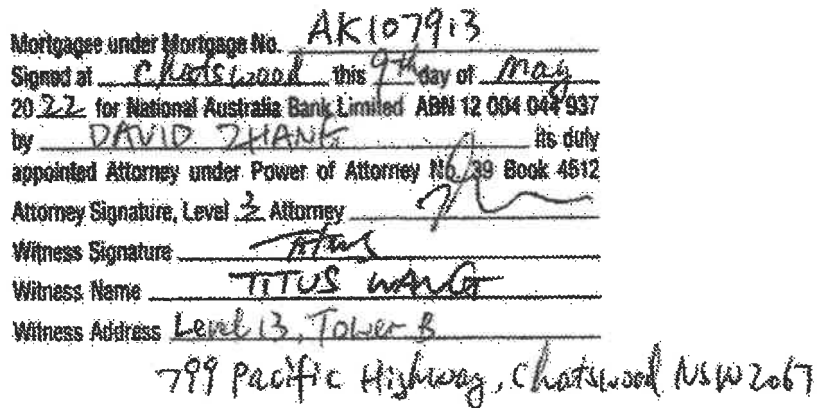 Mortgagee under Mortgage No. AK107913
Signed at Chatswood this 9th day of May
2022 for National Australia Bank Limited ABN 12 004 044 937
by DAVID ZHANG its duly
appointed Attorney under Power of Attorney No. 39 Book 4512
Attorney Signature, Level 3 Attorney
Witness Signature Titus
Witness Name TITUS WANG
Witness Address Level 13, Tower B
799 Pacific Highway, Chatswood NSW 2067